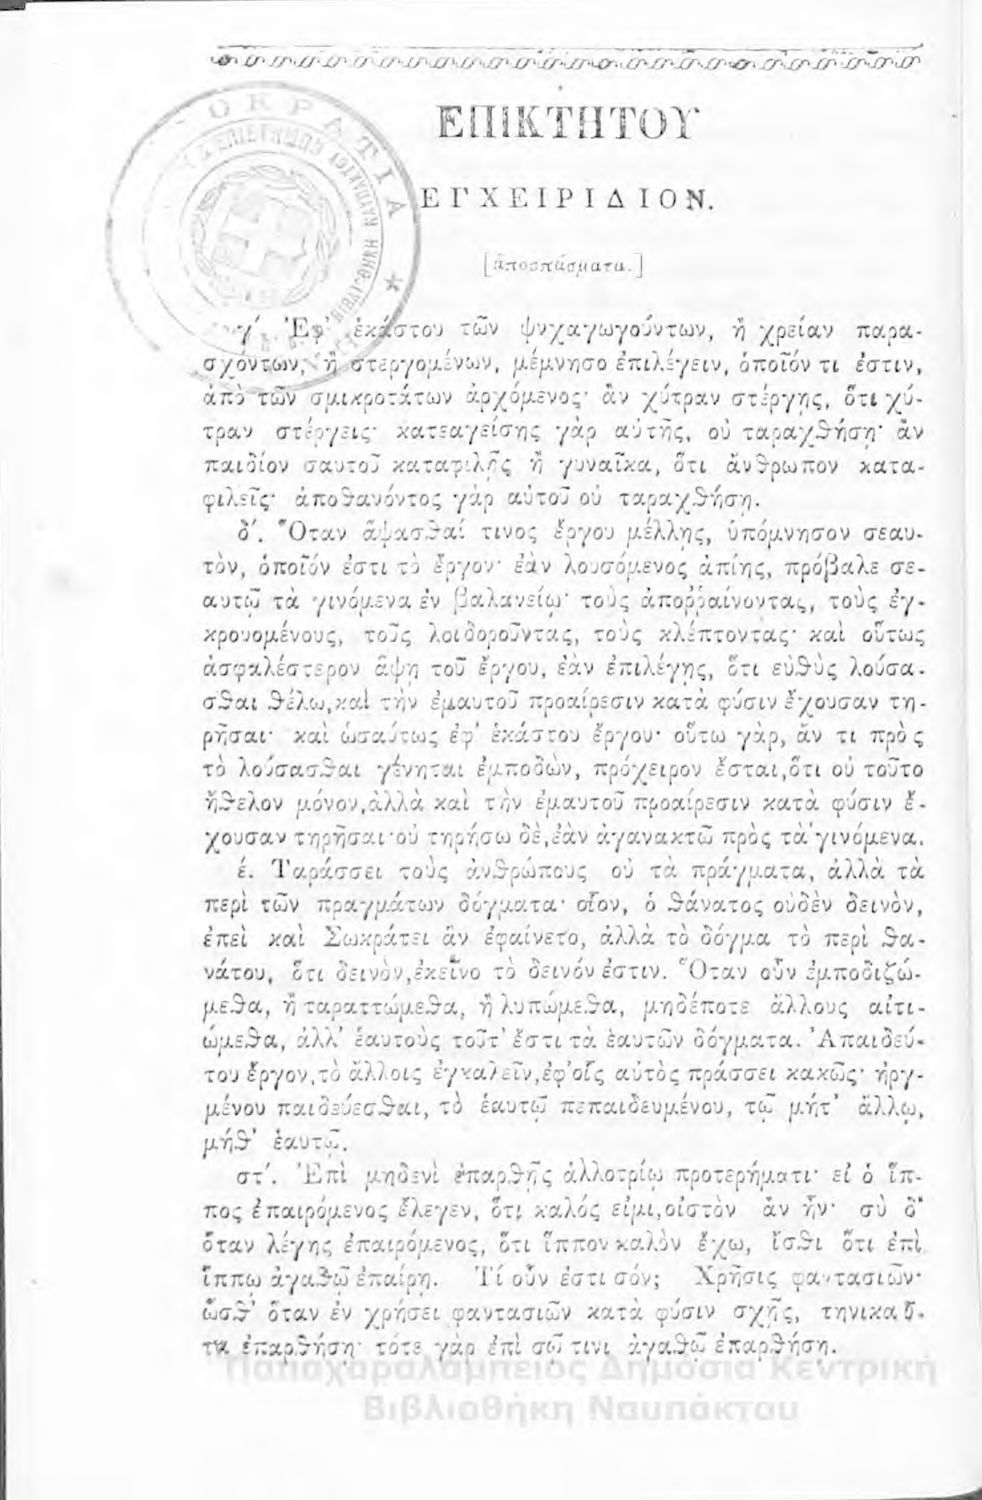 ΕΠΙΚΤΗΤΟΥ
ΕΓΧΕΙΡΙΔΙΟΝ.
[ἀποσπάσματα.]
γ΄. Ἐφ' ἑκάστου τῶν ψυχαγωγούντων, ἢ χρείαν παρα-
σχόντων, ἢ στεργομένων, μέμνησο ἐπιλέγειν, ὁποῖόν τι ἐστιν,
ἀπὸ τῶν σμικροτάτων ἀρχόμενος· ἂν χύτραν στέργῃς, ὅτι χύ-
τραν στέργεις· κατεαγείσης γὰρ αὐτῆς, οὐ ταραχθήσῃ· ἂν
παιδίον σαυτοῦ καταφιλῇς ἢ γυναῖκα, ὅτι ἄνθρωπον κατα-
φιλεῖς· ἀποθανόντος γὰρ αὐτοῦ οὐ ταραχθήσῃ.
δ΄. Ὅταν ἅψασθαί τινος ἔργου μέλλῃς, ὑπόμνησον σεαυ-
τὸν, ὁποῖόν ἐστι τὸ ἔργον· ἐὰν λουσόμενος ἀπίῃς, πρόβαλε σε-
αυτῷ τὰ γινόμενα ἐν βαλανείῳ· τοὺς ἀποῤῥαίνοντας, τοὺς ἐγ-
κρουομένους, τοὺς λοιδοροῦντας, τοὺς κλέπτοντας· καὶ οὕτως
ἀσφαλέστερον ἅψῃ τοῦ ἔργου, ἐὰν ἐπιλέγῃς, ὅτι εὐθὺς λούσα-
σθαι θέλω, καὶ τὴν ἐμαυτοῦ προαίρεσιν κατὰ φύσιν ἔχουσαν τη-
ρῆσαι· καὶ ὡσαύτως ἐφ' ἑκάστου ἔργου· οὕτω γὰρ, ἄν τι πρὸς
τὸ λούσασθαι γένηται ἐμποδὼν, πρόχειρον ἔσται, ὅτι οὐ τοῦτο
ἤθελον μόνον, ἀλλὰ καὶ τὴν ἐμαυτοῦ προαίρεσιν κατὰ φύσιν ἔ-
χουσαν τηρῆσαι· οὐ τηρήσω δὲ, ἐὰν ἀγανακτῶ πρὸς τὰ γινόμενα.
έ. Ταράσσει τοὺς ἀνθρώπους οὐ τὰ πράγματα, ἀλλὰ τὰ
περὶ τῶν πραγμάτων δόγματα· οἷον, ὁ θάνατος οὐδὲν δεινὸν,
ἐπεὶ καὶ Σωκράτει ἂν ἐφαίνετο, ἀλλὰ τὸ δόγμα τὸ περὶ θα-
νάτου, ὅτι δεινὸν, ἐκεῖνο τὸ δεινόν ἐστιν. Ὅταν οὖν ἐμποδιζώ-
μεθα, ἢ ταραττώμεθα, ἢ λυπώμεθα, μηδέποτε ἄλλους αἰτι-
ώμεθα, ἀλλ' ἑαυτοὺς τοῦτ' ἔστι τὰ ἑαυτῶν δόγματα. Ἀπαιδεύ-
του ἔργον, τὸ ἄλλοις ἐγκαλεῖν, ἐφ' οἷς αὐτὸς πράσσει κακῶς· ἠργ-
μένου παιδεύεσθαι, τὸ ἑαυτῷ πεπαιδευμένου, τῷ μήτ' ἄλλῳ,
μήθ' ἑαυτῷ.
στ΄. Ἐπὶ μηδενὶ ἐπαρθῇς ἀλλοτρίῳ προτερήματι· εἰ ὁ ἵπ-
πος ἐπαιρόμενος ἔλεγεν, ὅτι καλός εἰμι, οἰστὸν ἂν ἦν· σὺ δ'
ὅταν λέγῃς ἐπαιρόμενος, ὅτι ἵππον καλὸν ἔχω, ἴσθι ὅτι ἐπὶ
ἵππῳ ἀγαθῷ ἐπαίρῃ. Τί οὖν ἐστι σόν; Χρῆσις φαντασιῶν·
ὥσθ' ὅταν ἐν χρήσει φαντασιῶν κατὰ φύσιν σχῇς, τηνικαῦ-
τα ἐπαρθήσῃ· τότε γὰρ ἐπὶ σῷ τινι ἀγαθῷ ἐπαρθήσῃ.
Παπαχαραλάμπειος Δημόσια Κεντρική
Βιβλιοθήκη Ναυπάκτου